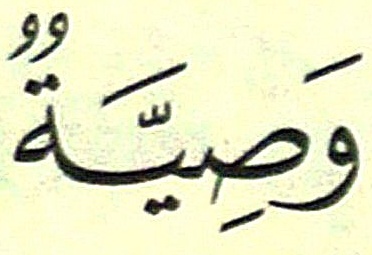 وَصِيَّةٌ